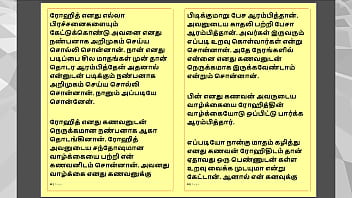 ரோஹித் எனது எல்லா
பிரச்சனைகளையும்
கேட்டுக்கொண்டு அவனை எனது
நண்பனாக அறிமுகம் செய்ய
சொல்லி சொன்னான். நான் எனது
படிப்பை சில மாதங்கள் முன் தான்
தொடர ஆரம்பித்தேன் அதனால்
என்னுடன் படிக்கும் நண்பனாக
அறிமுகம் செய்ய சொல்லி
சொன்னான். நானும் அப்படியே
சொன்னேன்.
ரோஹித் எனது கணவனுடன்
நெருக்கமான நண்பனாக ஆகா
தொடங்கினான். ரோஹித்
அவனுடைய சந்தோஷமான
வாழ்க்கையை பற்றி என்
கணவனிடம் சொன்னான். அவனது
வாழ்க்கை எனது கணவனுக்கு
பிடிக்குமாறு பேச ஆரம்பித்தான்.
அவனுடைய காதலி பற்றி பேசா
ஆரம்பித்தான். அவர்கள் இருவரும்
எப்படி உறவு கொள்வார்கள் என்று
சொன்னான். அதே நேரங்களில்
என்னை எனது கணவனுடன்
நெருக்கமாக இருக்கவேண்டாம்
என்றும் சொன்னான்.
பின் எனது கணவன் அவருடைய
வாழ்க்கையை ரோஹித்தின்
வாழ்க்கையோடு ஒப்பிட்டு பார்க்க
ஆரம்பித்தார்.
எப்படியோ நான்கு மாதம் கழித்து
எனது கணவன் ரோஹித்திடம் தான்
ஏதாவது ஒரு பெண்ணுடன் கள்ள
உறவு வைக்க முடியுமா என்று
கேட்டான். ஆனால் என் கனவுக்கு